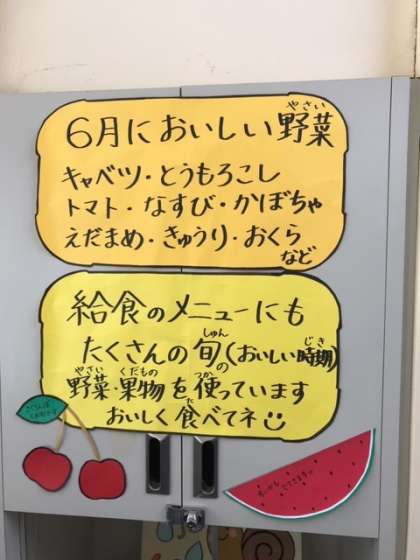 6月においしい野菜
やさい
キャベツ・とうもろこし
トマト・なすび・かぼちゃ
えだまめ・きゅうり・おくら
など
給食のメニューにも
たくさんの旬の(おいしい時期)
しゅん じき
野菜・果物を使っています
やさい くだもの つか
おいしく食べてネ
た